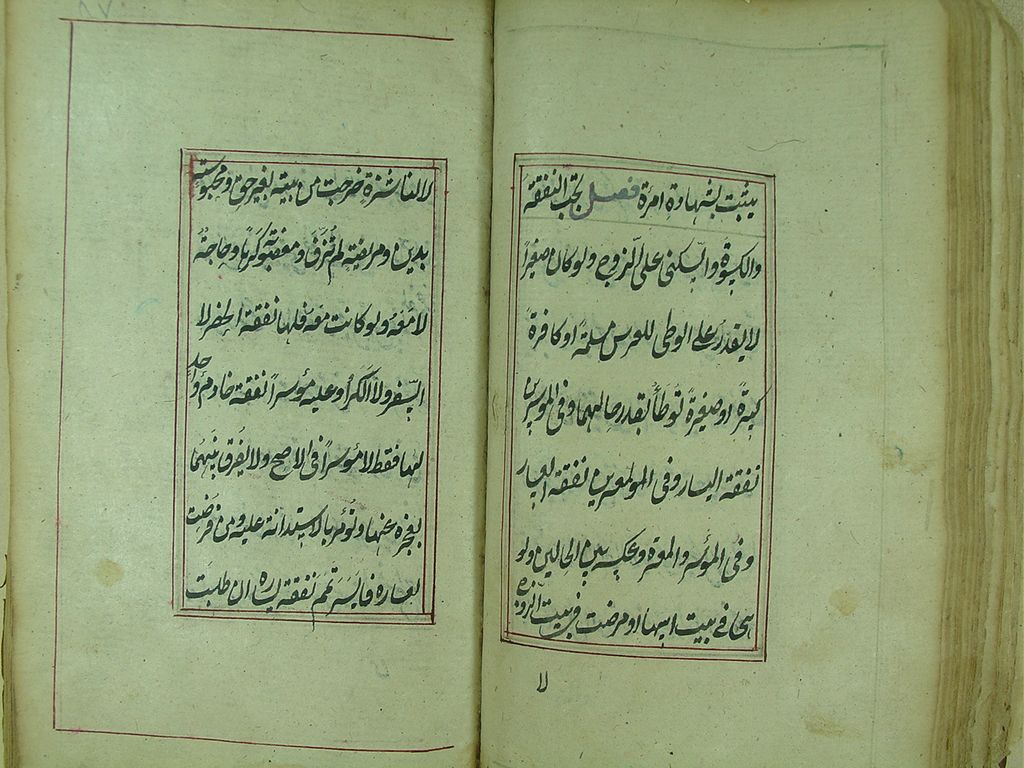 يثبت بشهادة امرة فصل تجب النفقة
والكسوة والسكنى على الزوج ولو كان صغيراً
لا يقدر على الوطى للعرس مسلمة او كافرة
كبيرة او صغيرة توطأ بقدر حالهما وفى الموسرين
نفقة اليسار وفى المعسرين نفقة العسار
وفى الموسر والمعسرة وعكسه بين الحالين ولو
هى فى بيت ابيها او مرضت فى بيت الزوج
لا
لا لناشزة خرجت من بيته بغير حق ومحبوسة
بدين ومريضة لم تزف ومغصوبة كرها وحاجة
لا معه ولو كانت معه فلها نفقة الحضر لا
السفر ولا الكرا وعليه موسراً نفقة خادم واحد
لها فقط لا معسراً فى الاصح ولا يفرق بينهما
بعجزه عنها وتؤمر بالاستدانة عليه ومن فرضت
لعساره فايسر تمم نفقة يساره ان طلبت